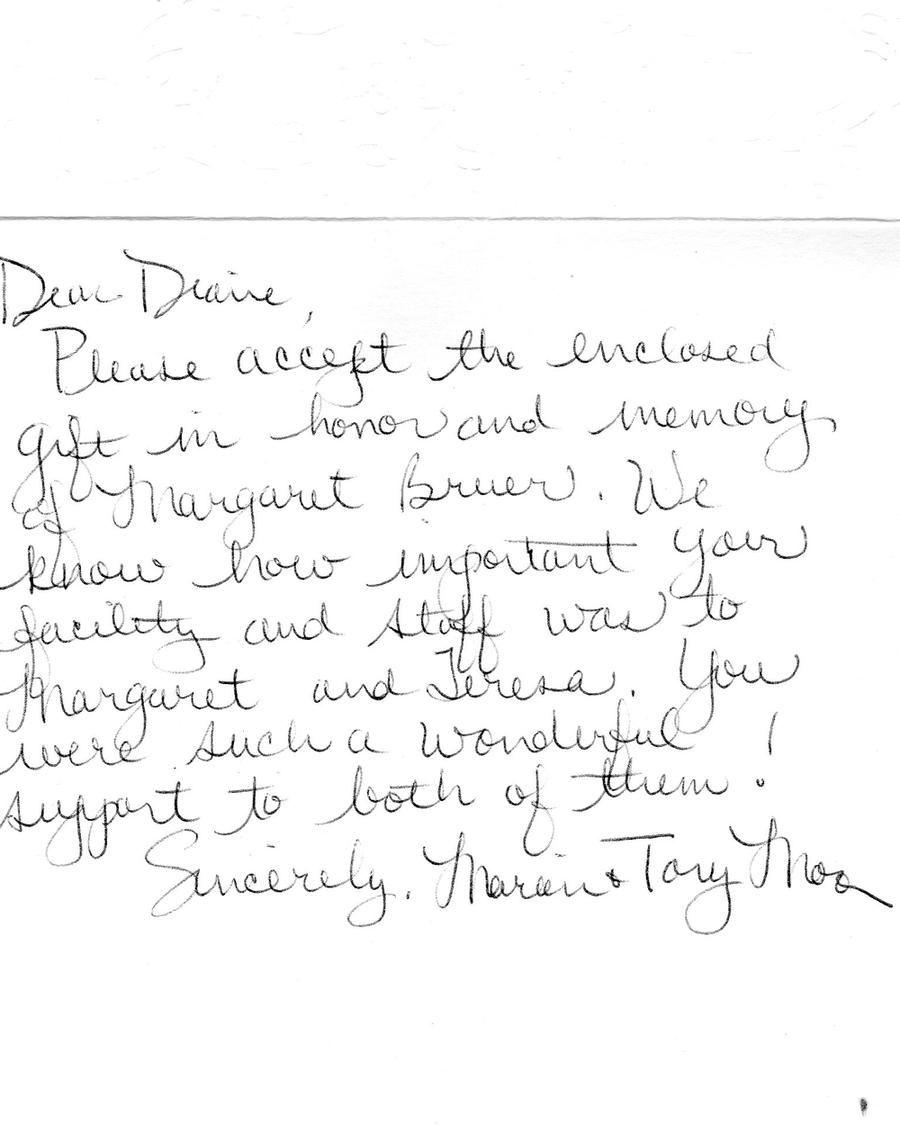 Dear Diane,
Please accept the enclosed
gift in honor and memory
of Margaret Bruer. We
know how important your
facility and staff was to
Margaret and Teresa. You
were such a wonderful
support to both of them!
Sincerely, Marian + Tory